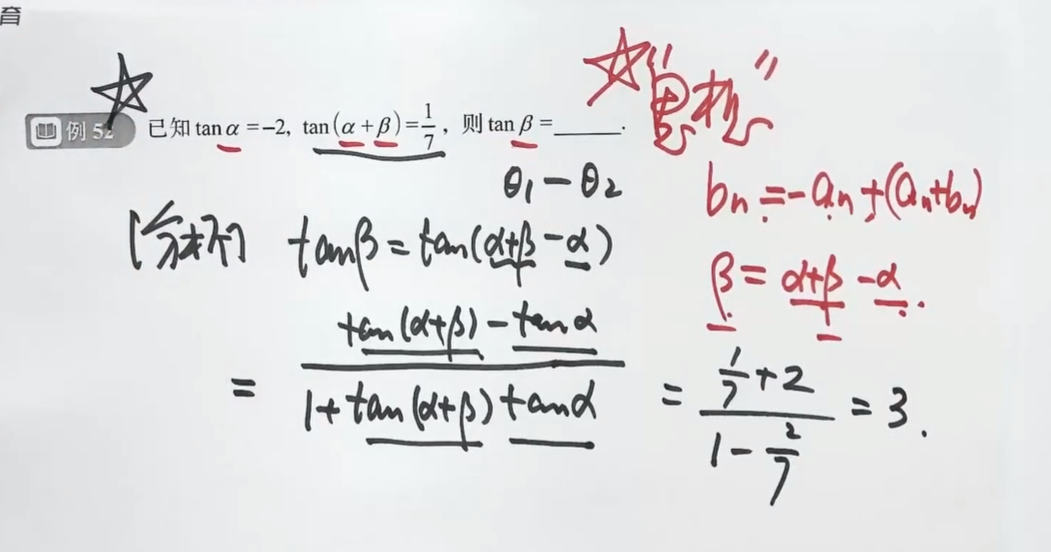 育
例 52 已知 tan α = -2, tan(α+β) = 1/7, 则 tan β = ______.
"思想"
θ₁ - θ₂
bₙ = -aₙ + (aₙ+bₙ)
[分析] tanβ = tan(α+β-α)
β = α+β-α.
= (tan(α+β) - tanα) / (1 + tan(α+β) tanα) = (1/7 + 2) / (1 - 2/7) = 3.